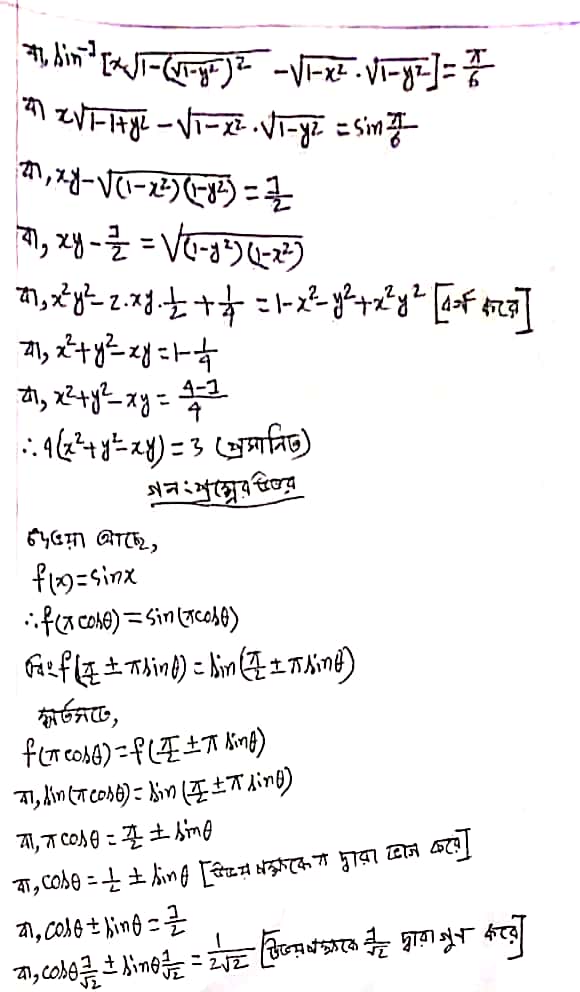 বা, sin⁻¹[x√1-(√1-y²)² - √1-x² . √1-y²] = π/6
বা x√1-1+y² - √1-x² . √1-y² = sin π/6
বা, xy - √(1-x²)(1-y²) = 1/2
বা, xy - 1/2 = √(1-y²)(1-x²)
বা, x²y² - 2.xy.1/2 + 1/4 = 1-x²-y²+x²y² [বর্গ করে]
বা, x²+y²-xy = 1-1/4
বা, x²+y²-xy = 4-1/4
∴ 4(x²+y²-xy) = 3 (প্রমানিত)
গনং প্রশ্নের উত্তর
দেওয়া আছে,
f(x) = sinx
∴ f(π cosθ) = sin(π cosθ)
এবং f(π/2 ± π sinθ) = sin(π/2 ± π sinθ)
শর্তমতে,
f(π cosθ) = f(π/2 ± π sinθ)
বা, sin(π cosθ) = sin(π/2 ± π sinθ)
বা, π cosθ = π/2 ± sinθ
বা, cosθ = 1/2 ± sinθ [উভয় পক্ষকে π দ্বারা ভাগ করে]
বা, cosθ ± sinθ = 1/2
বা, cosθ 1/√2 ± sinθ 1/√2 = 1/2√2 [উভয়পক্ষকে 1/√2 দ্বারা গুণ করে]